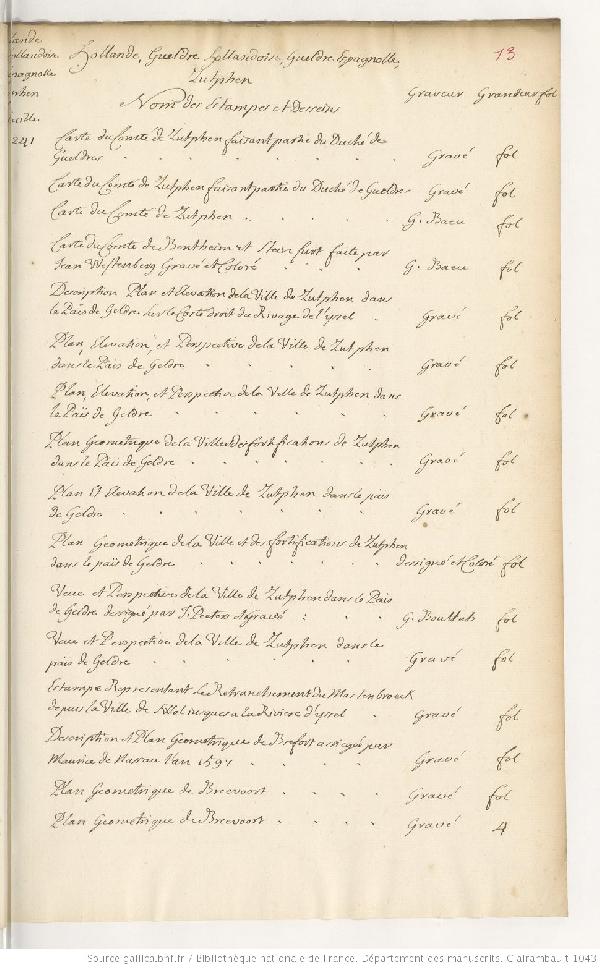 Hollande, Gueldre hollandoise, Gueldre Espagnolle, 13
Zutphen
Noms des Estampes et desseins Graveur Grandeur fol
241
Carte du Comté de Zutphen faisant partie du Duché de
Gueldres Gravé fol
Carte du Comté de Zutphen faisant partie du Duché de Gueldre Gravé fol
Carte du Comté de Zutphen G. Baeu fol
Carte du Comté de Bentheim et Steinfurt faite par
Jean Westemberg Gravé et Coloré G. Baeu fol
Description Plan et Elevation de la Ville de Zutphen dans
le Païs de Geldre sur le Costé droit du Rivage de l'yssel Gravé fol
Plan, Elevation, et Perspective de la Ville de Zutphen
dans le Païs de Geldre Gravé fol
Plan, Elevation, et Perspective de la Ville de Zutphen dans
le Païs de Geldre Gravé fol
Plan Geometrique de la Ville et des fortifications de Zutphen
dans le Païs de Geldre Gravé fol
Plan Et Elevation de la Ville de Zutphen dans le païs
de Geldre Gravé fol
Plan Geometrique de la Ville et des fortifications de Zutphen
dans le païs de Geldre dessigné et Coloré fol
Veue et Perspective de la Ville de Zutphen dans le Païs
de Geldre dessigné par J. Peeters et gravé G. Bouttats fol
Veue et Perspective de la Ville de Zutphen dans le
païs de Geldre Gravé fol
Estampe Representant Le Retranchement du
depuis la Ville de a la Riviere d'yssel Gravé fol
Description et Plan Geometrique de Brefort assiegé par
Maurice de Nassau l'an 1597 Gravé fol
Plan Geometrique de Brevoort Gravé fol
Plan Geometrique de Brevoort Gravé 4
Source gallica.bnf.fr / Bibliothèque nationale de France. Département des manuscrits. Clairambault 1043